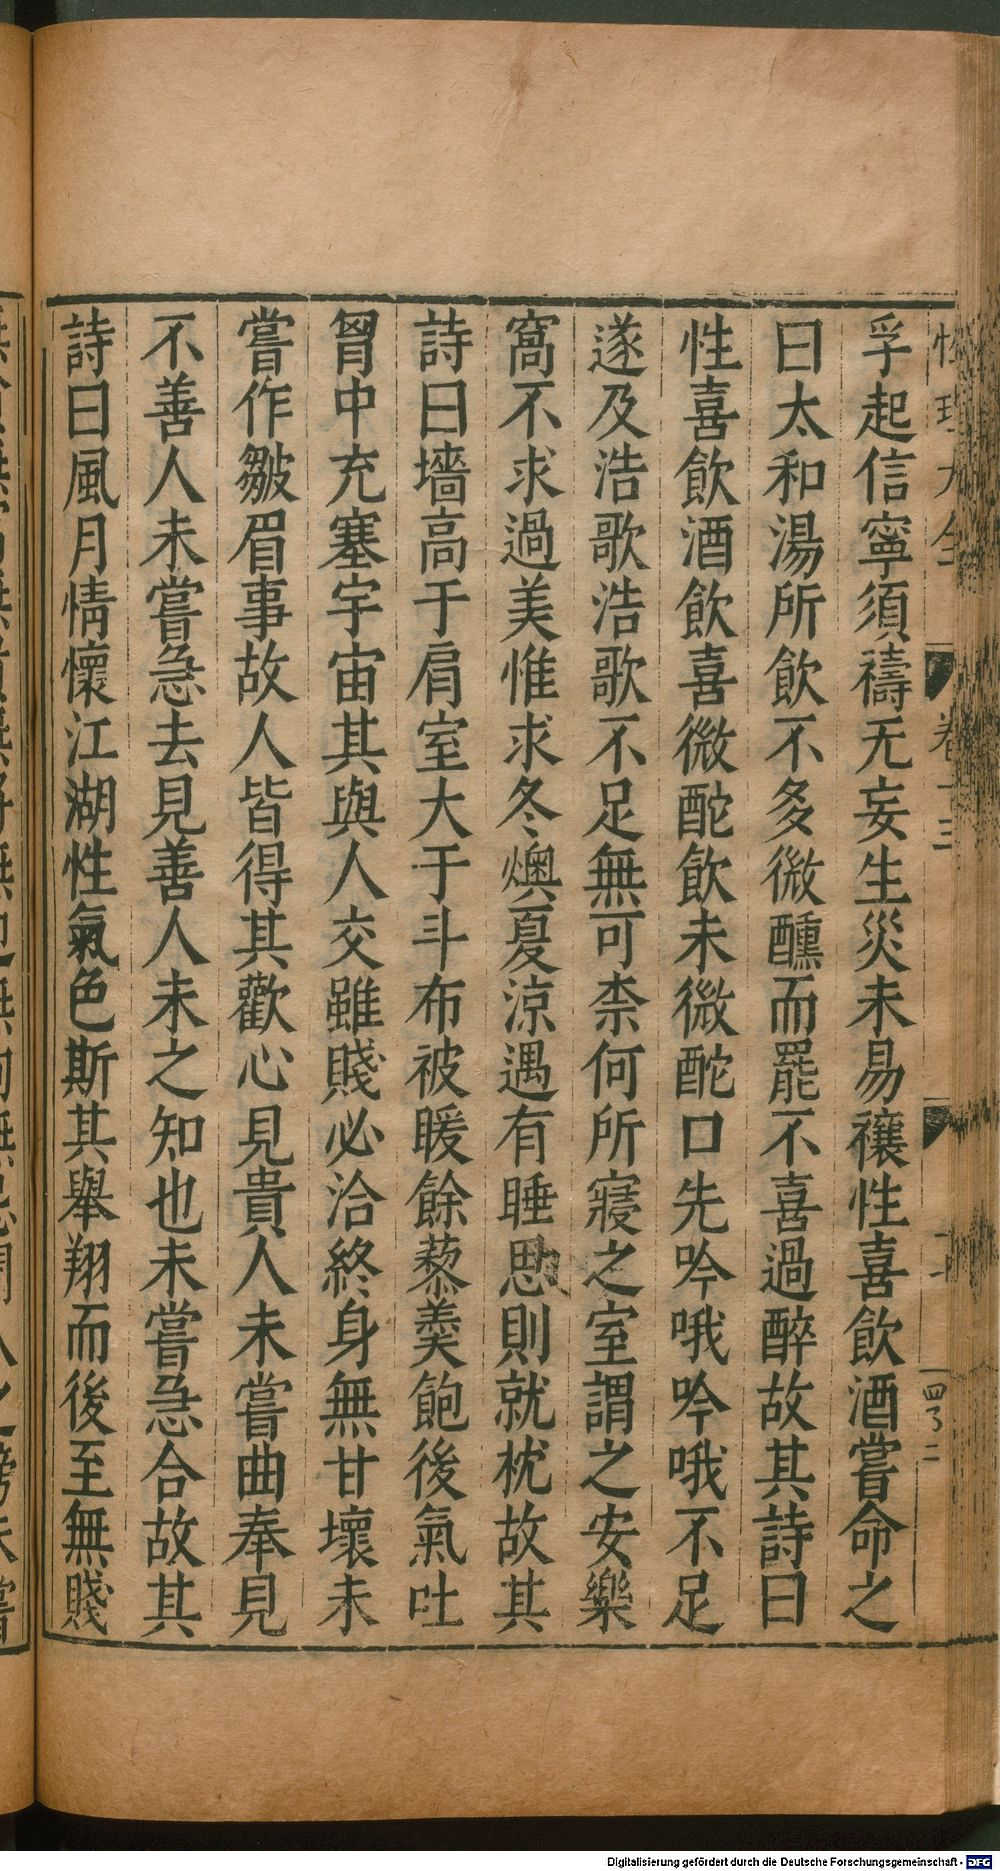 孚起信寧須禱无妄生災未易禳性喜飲酒嘗命之
曰太和湯所飲不多微醺而罷不喜過醉故其詩曰
性喜飲酒飲喜微酡飲未微酡口先吟哦吟哦不足
遂及浩歌浩歌不足無可柰何所寢之室謂之安樂
窩不求過美惟求冬燠夏涼遇有睡思則就枕故其
詩曰墻高于肩室大于斗布被暖餘藜羹飽後氣吐
胷中充塞宇宙其與人交雖賤必洽終身無甘壞未
嘗作皺眉事故人皆得其歡心見貴人未嘗曲奉見
不善人未嘗急去見善人未之知也未嘗急合故其
詩曰風月情懷江湖性氣色斯其舉翔而後至無賤
Digitalisierung gefördert durch die Deutsche Forschungsgemeinschaft - DFG